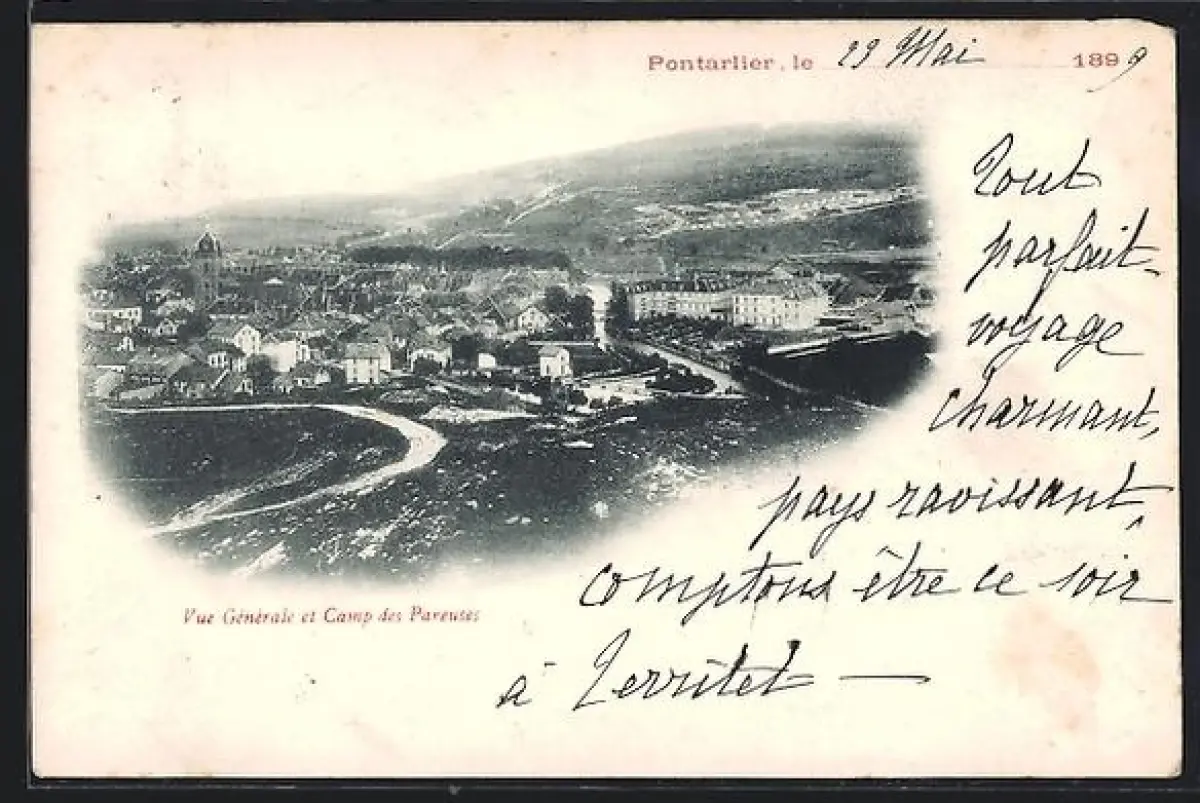 Pontarlier, le 23 Mai 1899
Tout
parfait -
voyage
charmant,
pays ravissant,
comptons être ce soir
à Territet —
Vue Générale et Camp des Pareuses